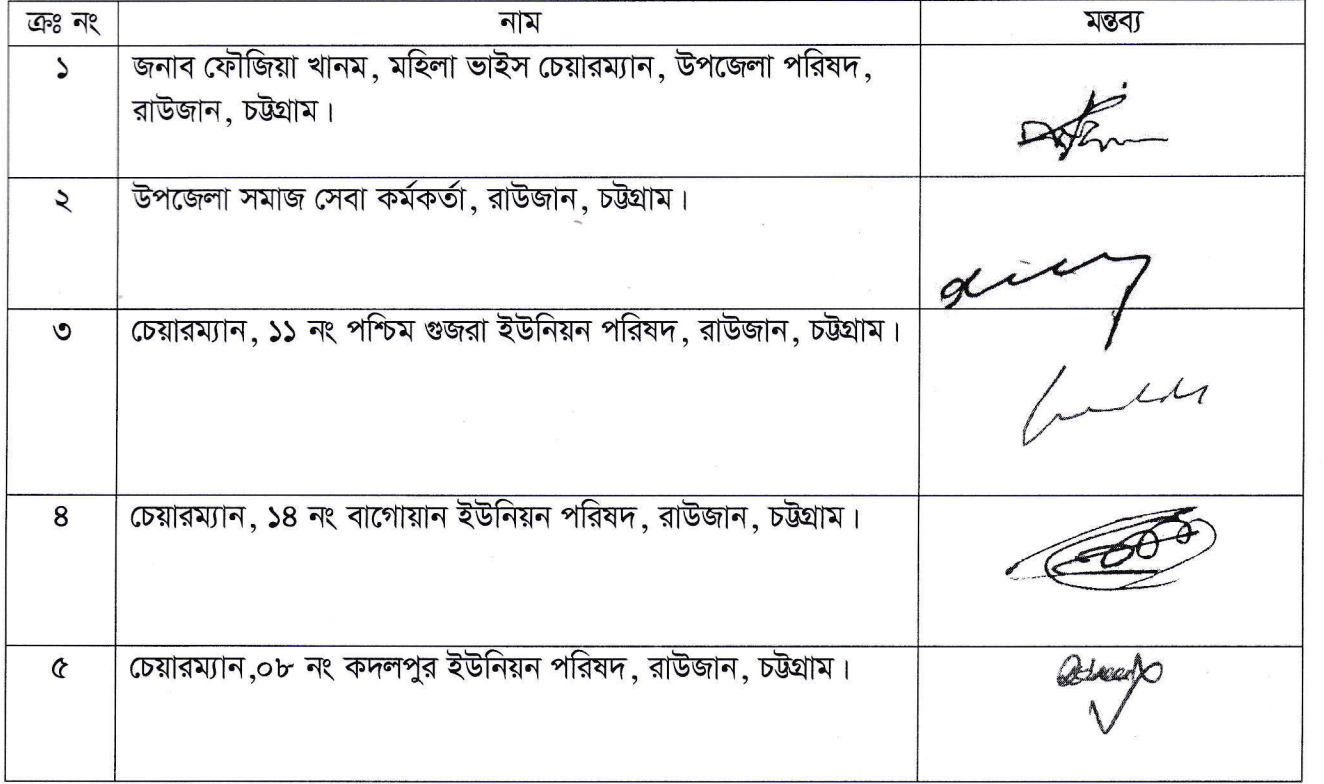 ক্রঃ নং নাম মন্তব্য
১ জনাব ফৌজিয়া খানম, মহিলা ভাইস চেয়ারম্যান, উপজেলা পরিষদ,
রাউজান, চট্টগ্রাম।
২ উপজেলা সমাজ সেবা কর্মকর্তা, রাউজান, চট্টগ্রাম।
৩ চেয়ারম্যান, ১১ নং পশ্চিম গুজরা ইউনিয়ন পরিষদ, রাউজান, চট্টগ্রাম।
৪ চেয়ারম্যান, ১৪ নং বাগোয়ান ইউনিয়ন পরিষদ, রাউজান, চট্টগ্রাম।
৫ চেয়ারম্যান,০৮ নং কদলপুর ইউনিয়ন পরিষদ, রাউজান, চট্টগ্রাম।